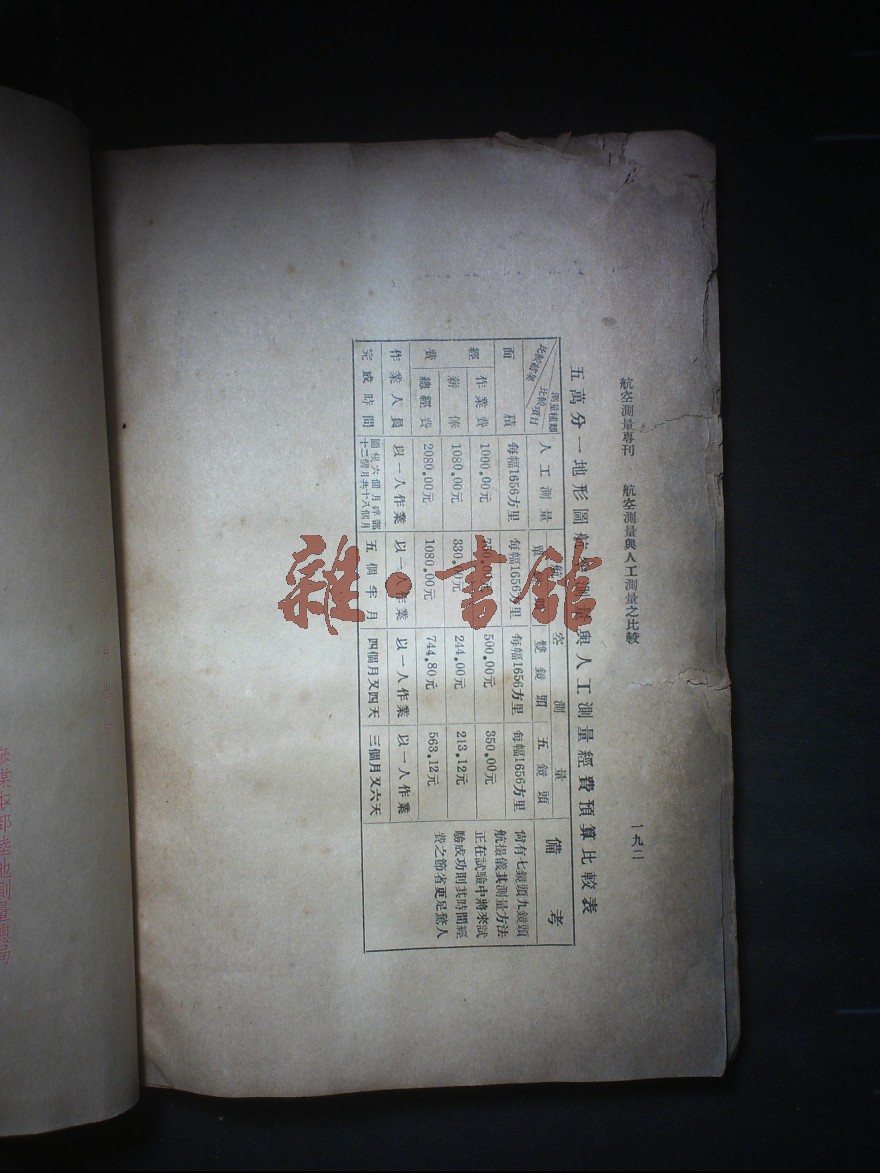 航空測量專刊　航空測量與人工測量之比較
一九二
五萬分一地形圖航空測量與人工測量經費預算比較表
測量種類　比較項目　人工測量　航空測量　備考
單鏡頭　雙鏡頭　五鏡頭
面積　每幅1656方里　每幅1656方里　每幅1656方里　每幅1656方里
經費　作業費　1000.00元　500.00元　350.00元
薪俸　1080.00元　330.00元　244.00元　213.12元
總經費　2080.00元　1080.00元　744.80元　563.12元
作業人員　以一人作業　以一人作業　以一人作業　以一人作業
完成時間　十二個月共十八個月　五個年月　四個月又四天　三個月又六天
尚有七鏡頭九鏡頭
航撮儀其測量方法
正在試驗中將來試
驗成功則其時間經
費之節省更足驚人
雜·書館
參謀本部陸地測量總局